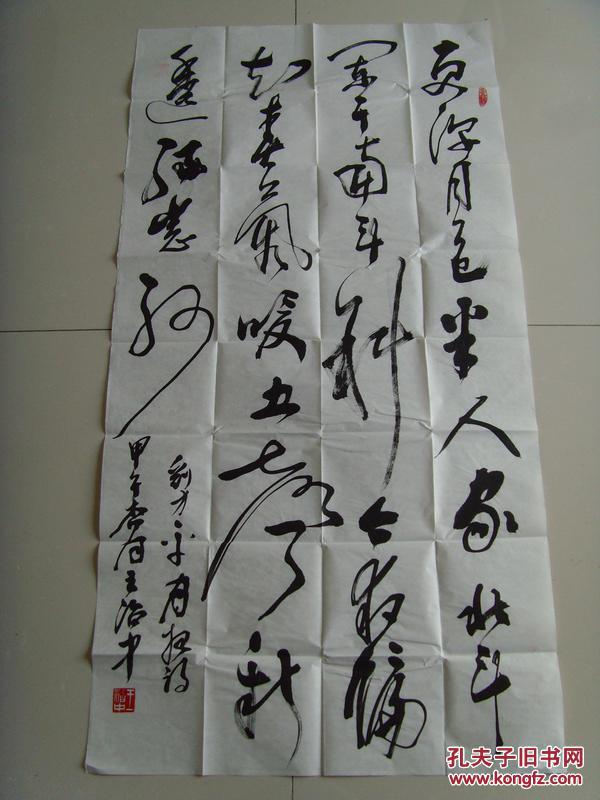 更深月色半人家北斗
阑干南斗斜今夜偏
知春气暖虫声新
透绿窗纱
刘方平月夜诗
甲午王治中
孔夫子旧书网
www.kongfz.com